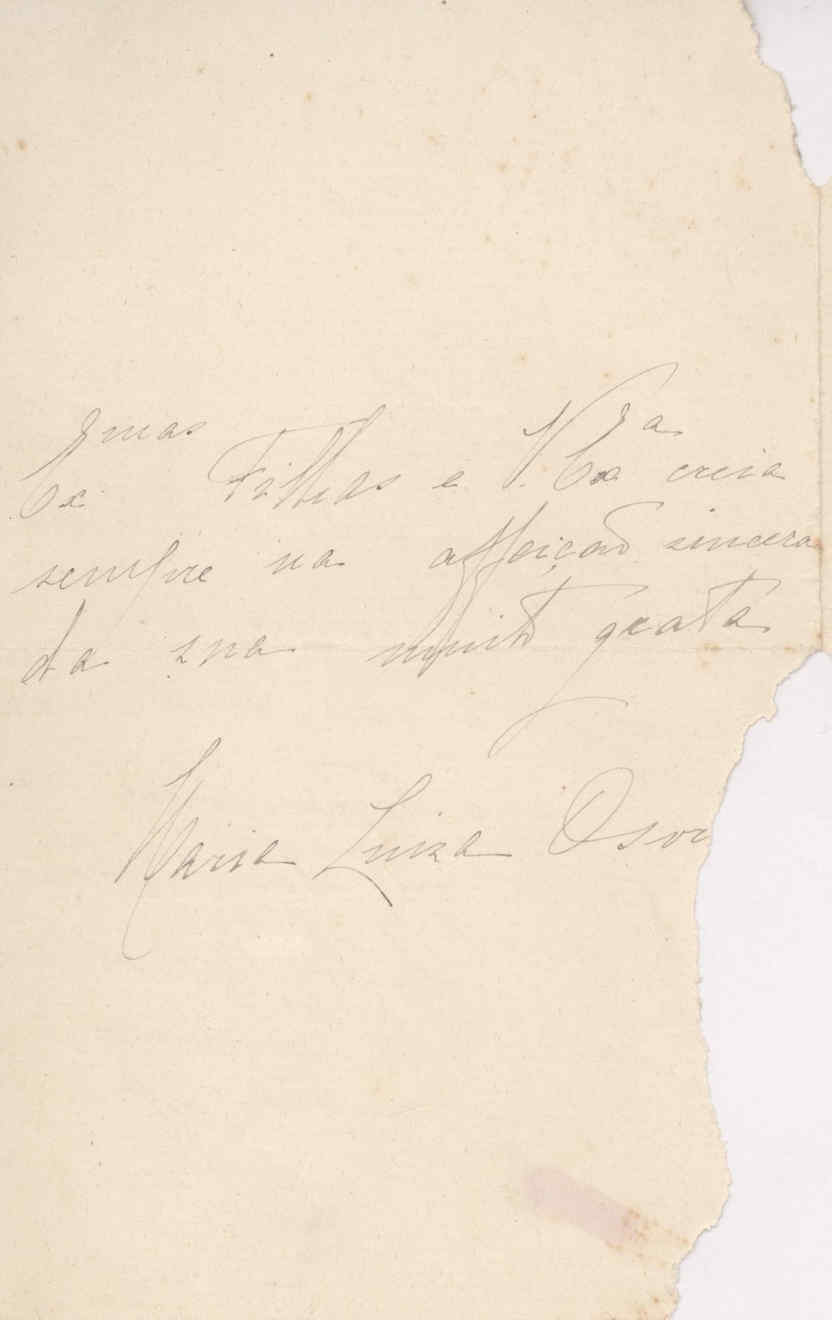 Exmas Filhas e V. Exa creia
sempre na affeição sincera
da sua muito grata
Maria Luiza Osor